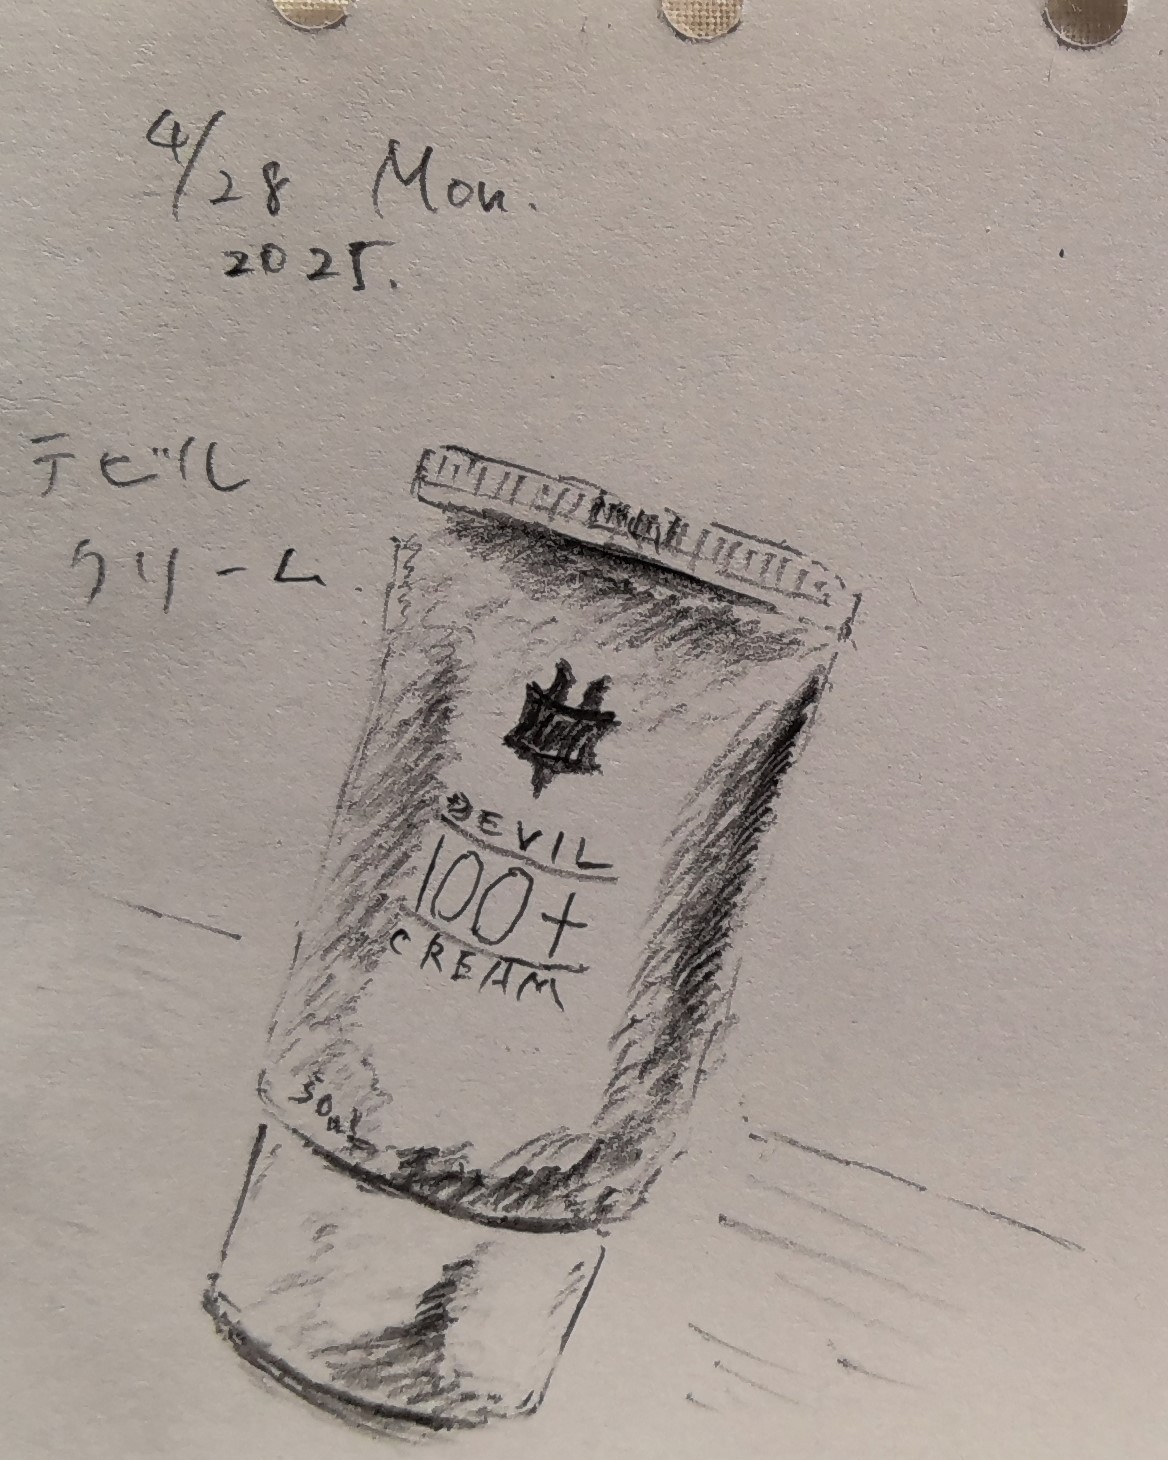 4/28 Mon.
2025.
テビル
クリーム.
DEVIL
100+
CREAM
50ml